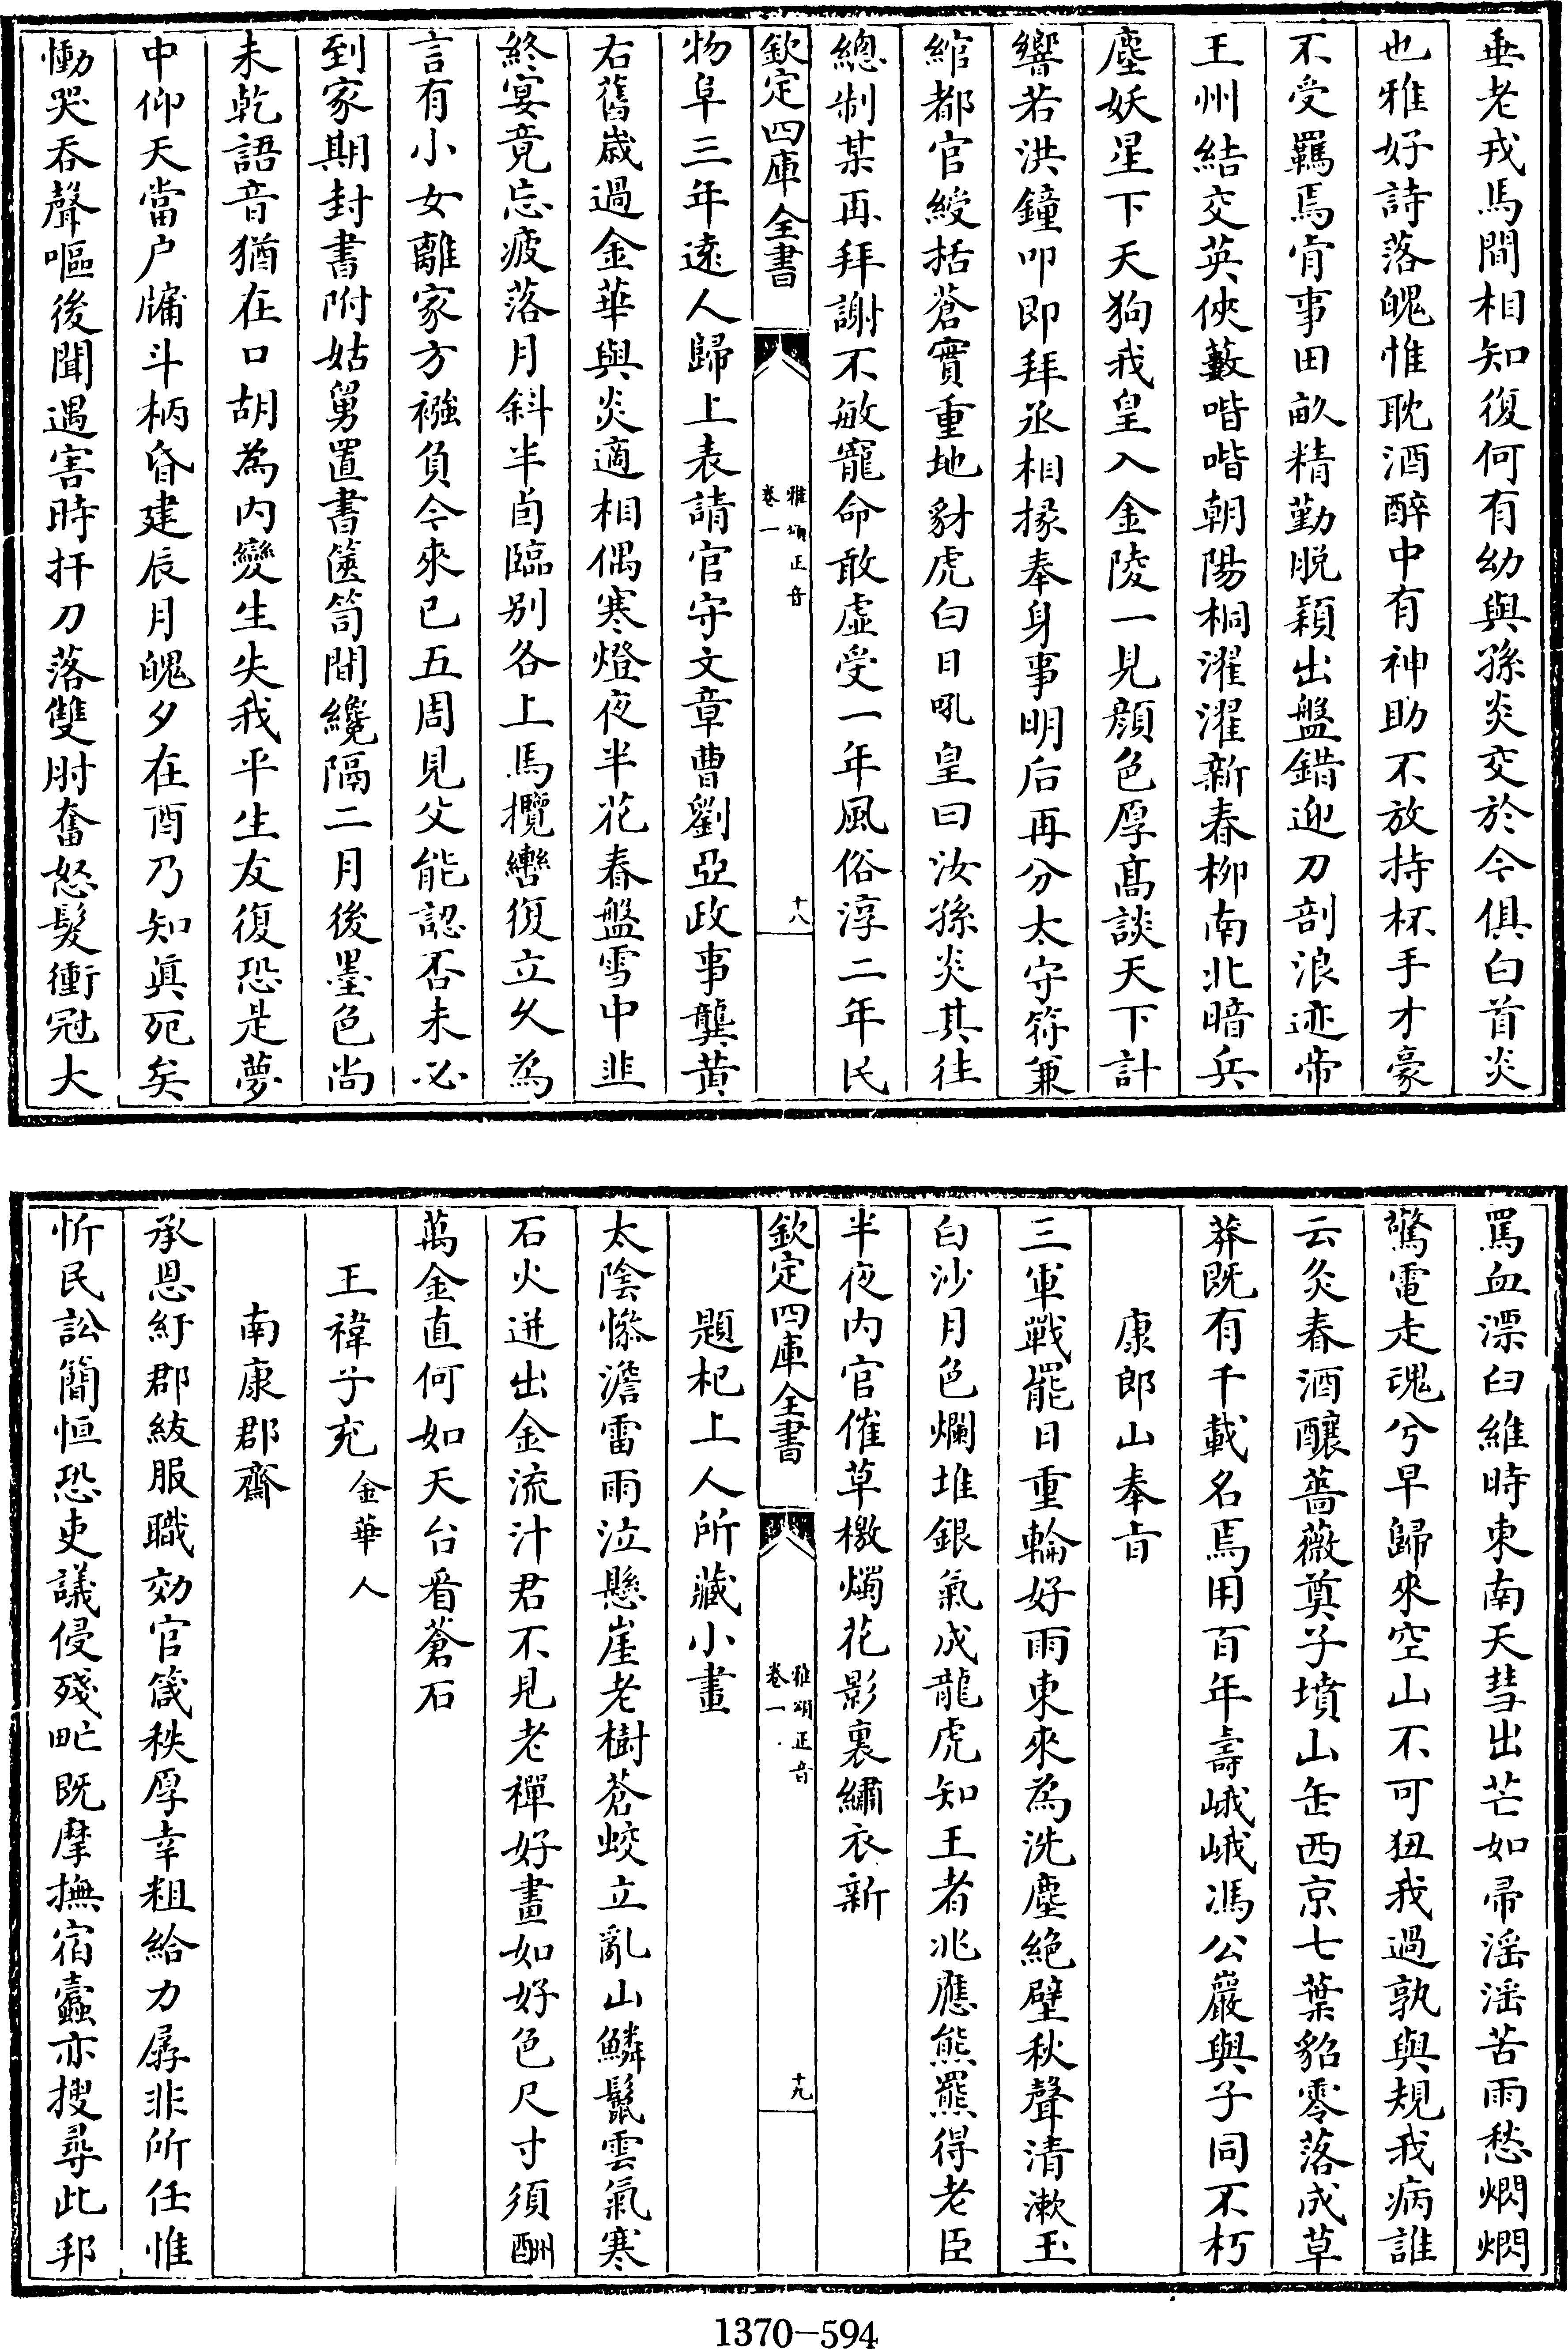 垂老戎馬間相知復何有幼與孫炎交於今俱白首炎
也雅好詩落魄惟耽酒醉中有神助不放持杯手才豪
不受羈焉肯事田畝精勤脱穎出盤錯迎刀剖浪迹帝
王州結交英俠藪喈喈朝陽桐濯濯新春柳南北暗兵
塵妖星下天狗我皇入金陵一見顔色厚髙談天下計
響若洪鐘叩即拜丞相掾奉身事明后再分太守符兼
綰都官綬括蒼實重地豺虎白日吼皇曰汝孫炎其往
總制某再拜謝不敏寵命敢虛受一年風俗淳二年民
欽定四庫全書
雅頌正音
卷一
十八
物阜三年逺人歸上表請官守文章曹劉亞政事龔黄
右舊嵗過金華與炎適相偶寒燈夜半花春盤雪中韭
終宴竟忘疲落月斜半卣臨别各上馬攬轡復立乆為
言有小女離家方襁負今來已五周見父能認否未必
到家期封書附姑舅置書篋笥間纔隔二月後墨色尚
未乾語音猶在口胡為内變生失我平生友復恐是夢
中仰天當户牖斗柄昏建辰月魄夕在酉乃知真死矣
慟哭吞聲嘔後聞遇害時扞刀落雙肘奮怒髮衝冠大
罵血漂臼維時東南天彗出芒如帚滛滛苦雨愁燜燜
驚電走魂兮早歸來空山不可狃我過孰與規我病誰
云灸春酒釀薔薇奠子墳山缶西京七葉貂零落成草
莽既有千載名焉用百年壽峨峨馮公巖與子同不朽
康郎山奉㫖
三軍戰罷日重輪好雨東來為洗塵絶壁秋聲清漱玉
白沙月色爛堆銀氣成龍虎知王者兆應熊羆得老臣
半夜内官催草檄燭花影裏繡衣新
欽定四庫全書
雅頌正音
卷一
十九
題杞上人所藏小畫
太陰慘澹雷雨泣懸崖老樹蒼蛟立亂山鱗鬛雲氣寒
石火迸出金流汁君不見老禪好畫如好色尺寸須酬
萬金直何如天台㸔蒼石
王禕子充金華人
南康郡齋
承恩紆郡紱服職効官箴秩厚幸粗給力孱非所任惟
忻民訟簡恒恐吏議侵殘甿既摩撫宿蠧亦搜尋此邦
1370－594